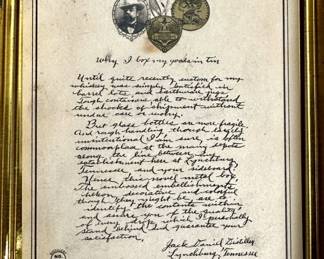 Why I box my goods in tin
Until quite recently custom for my
whiskey was simply satisfied in
barrel lots and earthware jugs.
Tough containers able to withstand
the shocks of shipment without
undue care or worry.
But glass bottles are more fragile
And rough handling though largely
unintentional I am sure is often
commonplace at the many depots
along the line between my
establishment here at Lynchburg,
Tennessee and your sideboard.
Hence this novel metal box.
The embossed embellishments
hereon, decorative and colorful
though they might be are to
identify the contents within
and assure you of the quality
of every drop which I personally
stand behind and guarantee your
satisfaction.
Jack Daniel Distiller
Lynchburg, Tennessee